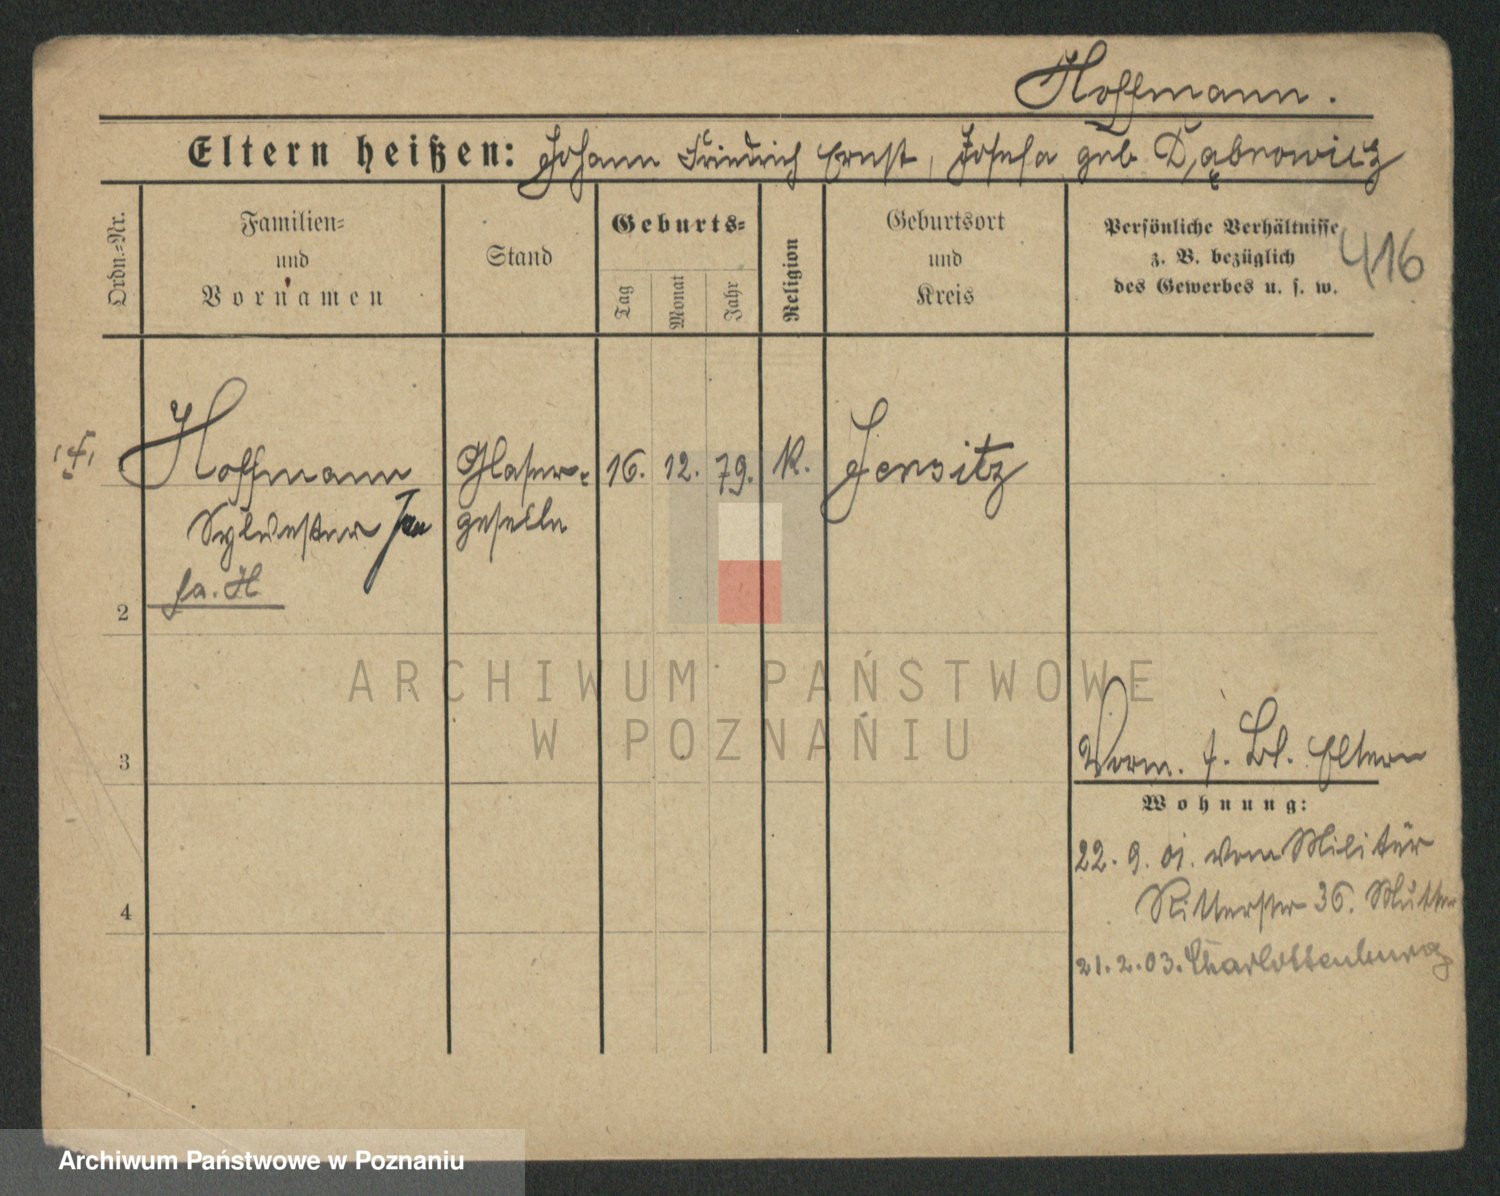 Hoffmann.
Eltern heißen: Johann Friedrich Ernst, Josefa geb. Dąbrowicz
Ordn.-Nr.
Familien-
und
Vornamen
Stand
Geburts-
Tag
Monat
Jahr
Religion
Geburtsort
und
Kreis
Persönliche Verhältnisse
z. B. bezüglich
des Gewerbes u. s. w.
416
Hoffmann
Sylvester
fa. H
Glaser-
geselle
16. 12. 79.
K.
Jersitz
2
3
4
Vorm. f. Bl. Eltern
Wohnung:
22. 9. 01. vom Militär
Ritterstr 36. Mutter
21. 2. 03. Charlottenburg
ARCHIWUM PAŃSTWOWE
W POZNANIU
Archiwum Państwowe w Poznaniu